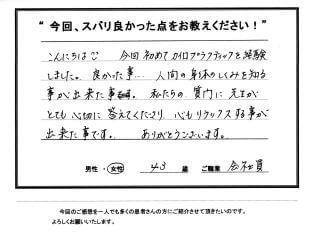 “今回、スバリ良かった点をお教えください！”
こんにちは☺ 今回初めてカイロプラクティックを経験
しました。良かった事… 人間の身体のしくみを知る
事が出来た事。私たちの質問に先生が
とても心切に答えてくださり、心もリラックスする事が
出来た事です。 ありがとうございます。
男性・女性 43 歳 ご職業 会社員
今回のご感想を一人でも多くの患者さんの方にご紹介させて頂きたいのです。
よろしくお願いいたします。